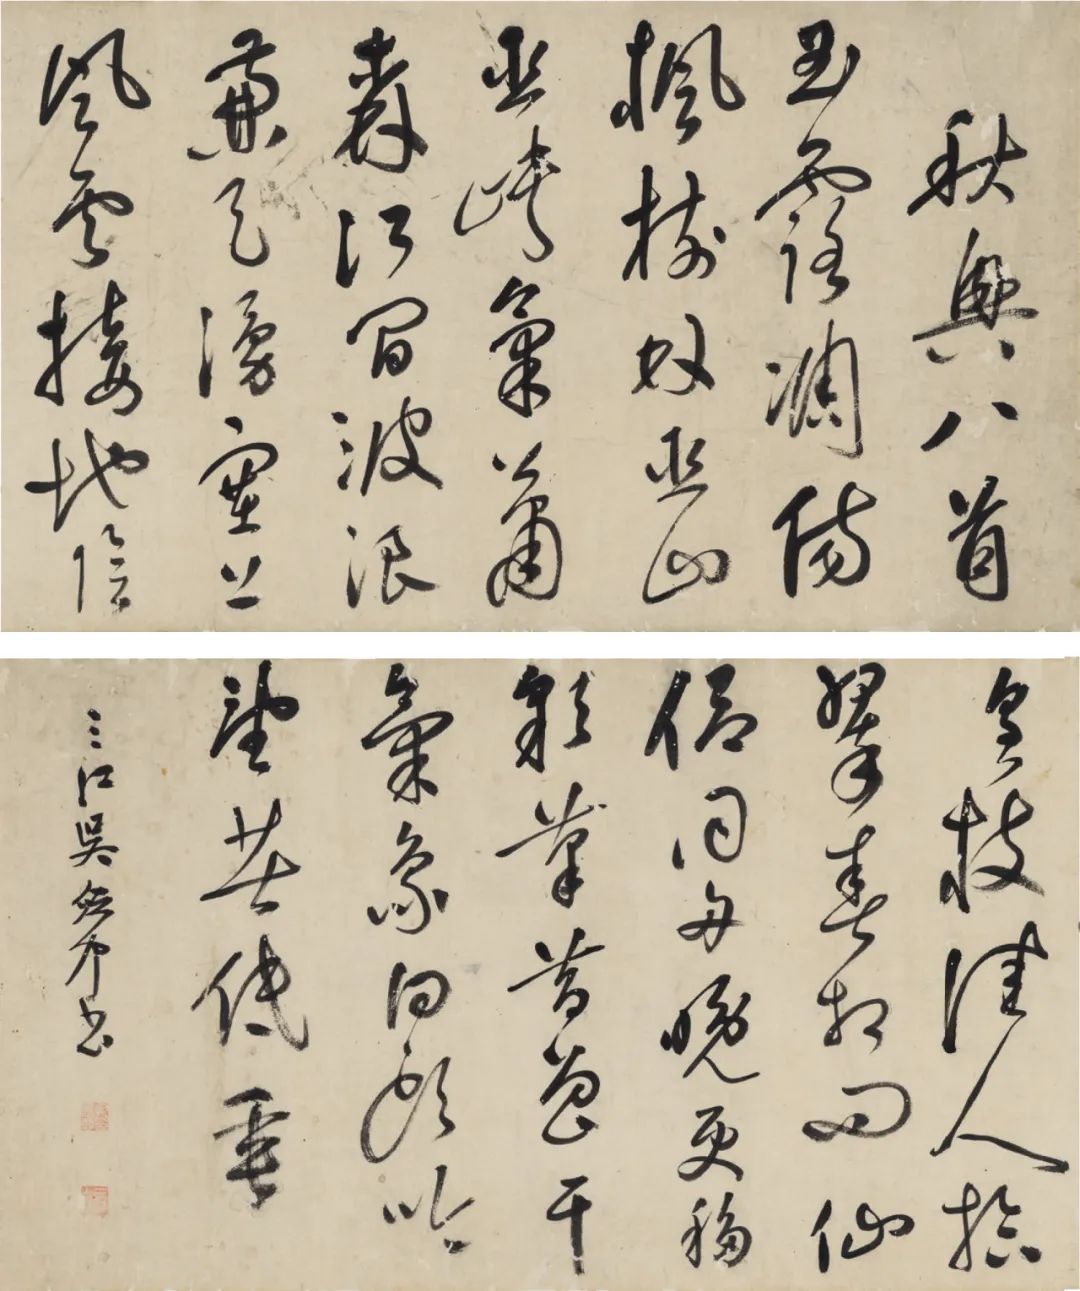 秋興八首
玉露凋傷
楓樹林巫山
巫峽氣蕭
森江間波浪
兼天湧塞上
風雲接地陰
凰枝佳人拾
翠春相問仙
侶同舟晚更移
彩筆昔曾干
氣象白頭吟
望苦低垂
三江吳書